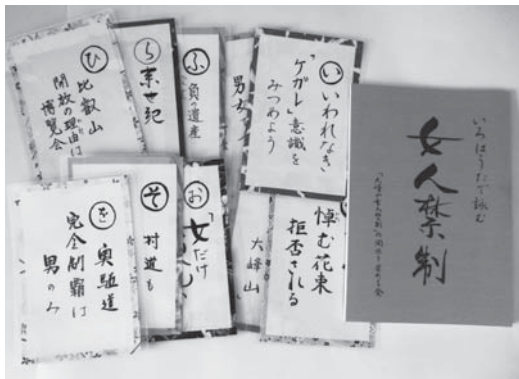 ひ
比叡山
開放の理由は
博覧会
ら
来世紀
ふ
負の遺産
男女
い
いわれなき
「ケガレ」意識を
みつめよう
いろはうたで詠む
女人禁制
を
奥駈道
完全制覇は
男のみ
そ
村道も
お
「女」だけ
大峰山
悼む花束
拒否される